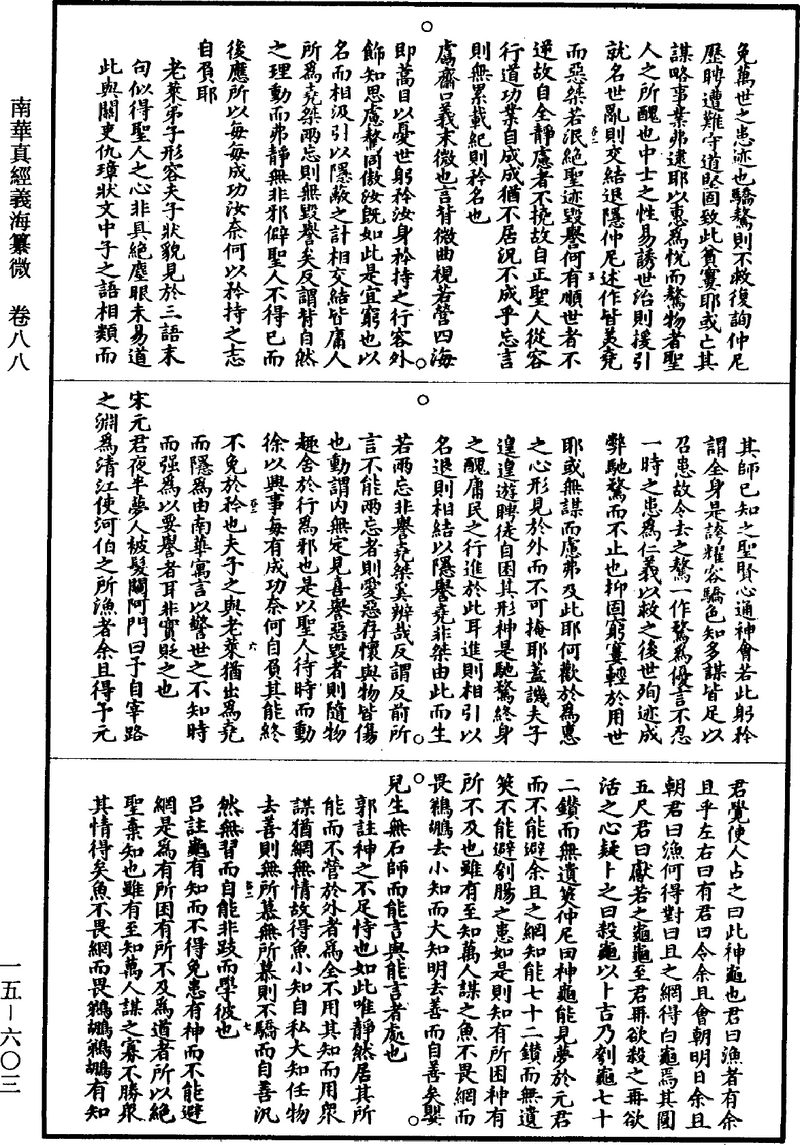 南華真經義海纂微　卷八八
一五－六〇三
免萬世之患迹也驕驁則不救復詢仲尼
歷聘遭難守道堅固致此貧窶耶或亡其
謀略事業弗逮耶以惠為悅而驁物者聖
人之所醜也中士之性易誘世治則援引
就名世亂則交結退隱仲尼述作皆美堯
而惡桀若泯絕聖迹毀譽何有順世者不
逆故自全靜慮者不撓故自正聖人從容
行道功業自成成猶不居況不成乎忘言
則無累載紀則矜名也
虜齋口義末微也言背微曲視若營四海
即蒿目以憂世躬矜汝身矜持之行容外
飾知思慮驁同傲汝既如此是宜窮也以
名而相汲引以隱蔽之計相交結皆庸人
所為堯桀兩忘則無毀譽矣反謂背自然
之理動而弗靜無非邪僻聖人不得已而
後應所以每每成功汝奈何以矜持之志
自負耶
老萊弟子形容夫子狀貌見於三語末
句似得聖人之心非具絕塵眼未易道
此與關吏仇璋狀文中子之語相類而
其師已知之聖賢心通神會若此躬矜
謂全身是誇耀容驕色知多謀皆足以
召患故令去之驁一作騖為優言不忍
一時之患為仁義以救之後世殉迹成
弊馳騖而不止也抑固窮窶輕於用世
耶或無謀而慮弗及此耶何歡於為惠
之心形見於外而不可掩耶蓋譏夫子
遑遑遊聘徒自困其形神是馳騖終身
之醜庸民之行進於此耳進則相引以
名退則相結以隱譽堯非桀由此而生
若兩忘非譽堯桀奚辨哉反謂反前所
言不能兩忘者則愛惡存懷與物皆傷
也動謂內無定見喜譽惡毀者則隨物
趣舍於行為邪也是以聖人待時而動
徐以興事每有成功奈何自負其能終
不免於矜也夫子之與老萊猶出為堯
而隱為由南華寓言以警世之不知時
而强為以要譽者耳非實貶之也
宋元君夜半夢人被髮闚阿門曰予自宰路
之淵為清江使河伯之所漁者余且得予元
君覺使人占之曰此神龜也君曰漁者有余
且乎左右曰有君曰令余且會朝明日余且
朝君曰漁何得對曰且之網得白龜焉其圓
五尺君曰獻若之龜龜至君再欲殺之再欲
活之心疑卜之曰殺龜以卜吉乃刳龜七十
二鑽而無遺筴仲尼曰神龜能見夢於元君
而不能避余且之網知能七十二鑽而無遺
筴不能避刳腸之患如是則知有所困神有
所不及也雖有至知萬人謀之魚不畏網而
畏鵜鶘去小知而大知明去善而自善矣嬰
兒生無石師而能言與能言者處也
郭註神之不足恃也如此唯靜然居其所
能而不營於外者為全不用其知而用眾
謀猶網無情故得魚小知自私大知任物
去善則無所慕無所慕則不驕而自善汎
然無習而自能非跂而學彼也
呂註龜有知而不得免患有神而不能避
網是為有所困有所不及為道者所以絕
聖棄知也雖有至知萬人謀之寡不勝衆
其情得矣魚不畏網而畏鵜鶘鵜鶘有知